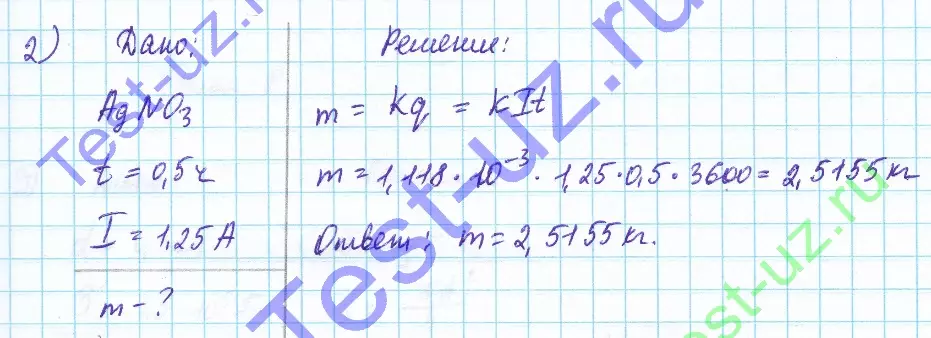 2) Дано: Решение:
AgNO3 m = kq = kIt
t = 0,5 ч m = 1,118 · 10⁻³ · 1,25 · 0,5 · 3600 = 2,5155 кг
I = 1,25 А Ответ: m = 2,5155 кг.
m - ?
Test-uz.ru
Test-uz.ru
Test-uz.ru